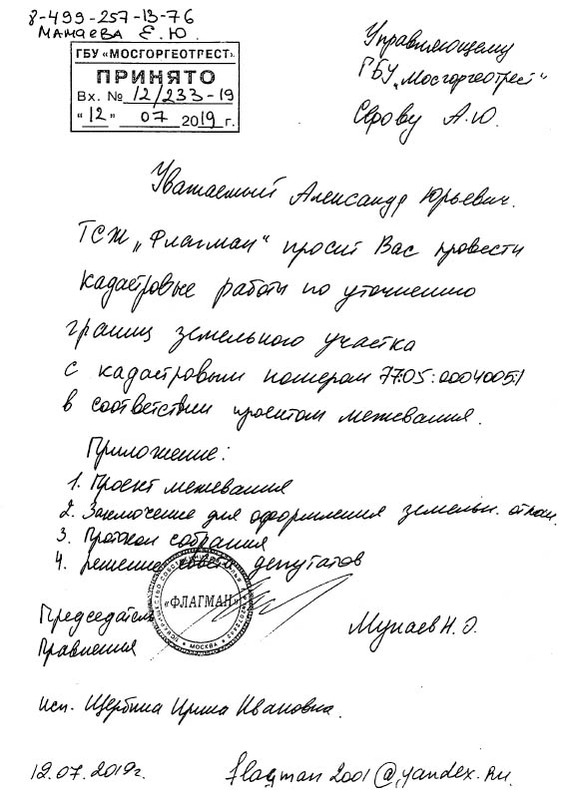 8-499-257-13-76
Мамаева Е.Ю.
ГБУ «МОСГОРГЕОТРЕСТ»
ПРИНЯТО
Вх. № 12/233-19
"12" 07 2019 г.
Управляющему
ГБУ „Мосгоргеотрест"
Серову А.Ю.
Уважаемый Александр Юрьевич.
ТСЖ „Флагман" просит Вас провести
кадастровые работы по уточнению
границ земельного участка
с кадастровым номером 77:05:0004005:1
в соответствии проектом межевания.
Приложение:
1. Проект межевания
2. Заключение для оформления земельн. отнош.
3. Протокол собрания
4. решение совета депутатов
«ФЛАГМАН»
МОСКВА
Председатель
Правления
Мунаев Н.Э.
исп. Щербина Ирина Ивановна.
12.07.2019г.
flagman2001@yandex.ru.